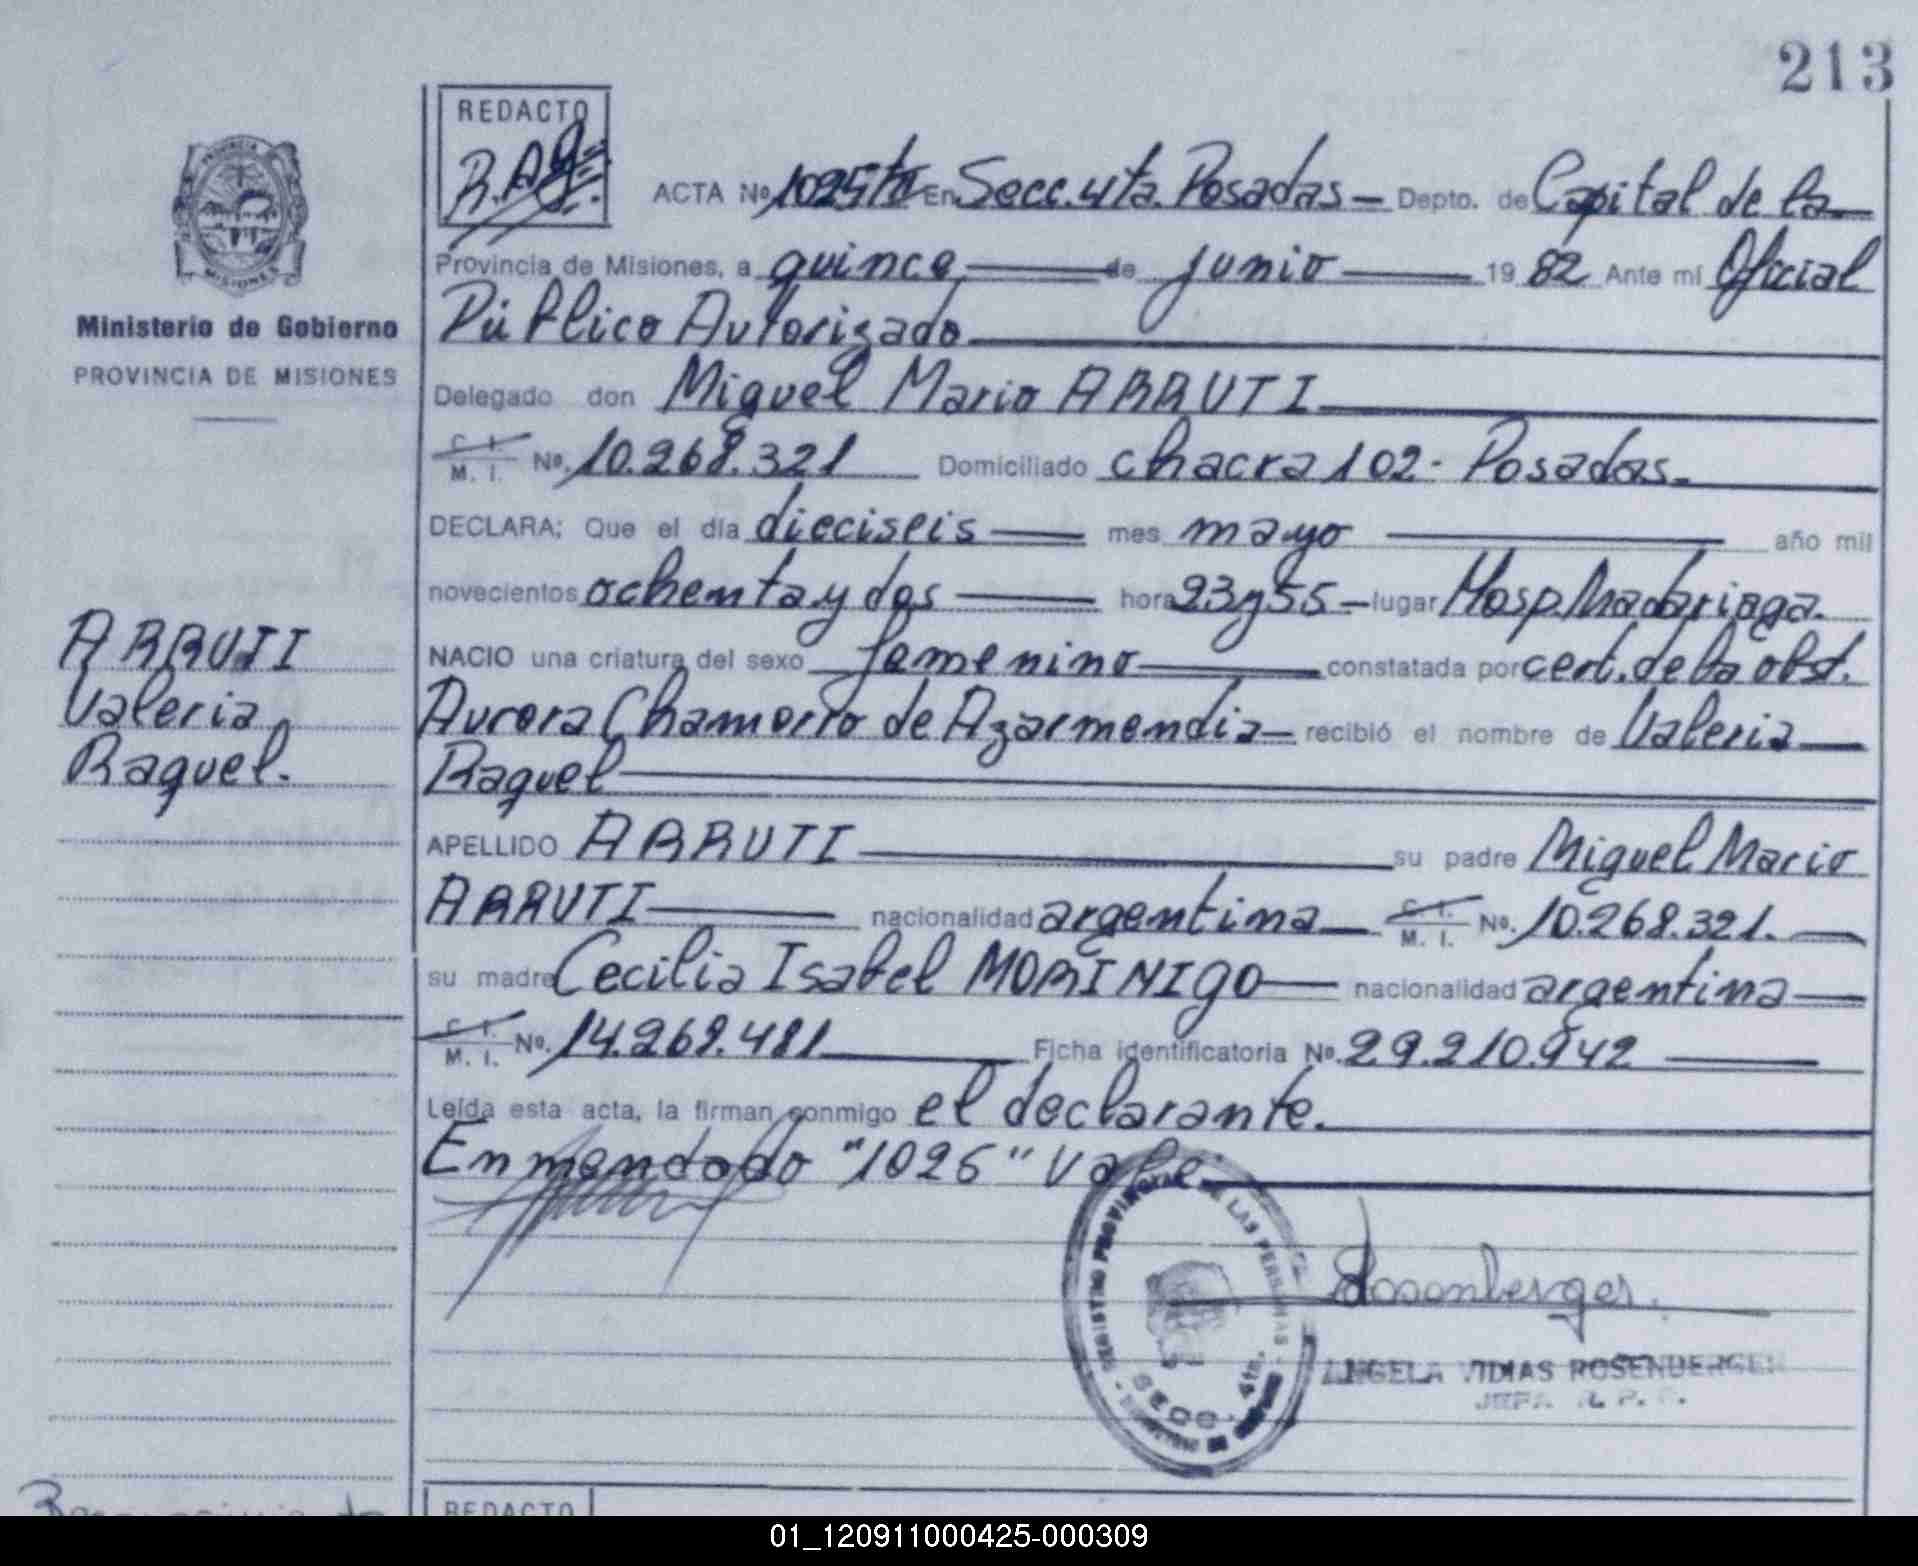 213
REDACTO
ACTA Nº 1025 En Secc. 4ta. Posadas - Depto. de Capital de la
Provincia de Misiones, a quince de junio 1982 Ante mí Oficial
Público Autorizado
Delegado don Miguel Mario ARRUTI
C. I. / M. I. Nº. 10.268.321 Domiciliado chacra 102 - Posadas.
DECLARA: Que el día dieciseis mes mayo año mil
novecientos ochenta y dos hora 23 y 55 - lugar Hosp. Madariaga.
NACIO una criatura del sexo femenino constatada por cert. de la obst.
Aurora Chamorro de Azarmendia - recibió el nombre de Valeria
Raquel
APELLIDO ARRUTI su padre Miguel Mario
ARRUTI nacionalidad argentina C. I. / M. I. Nº. 10.268.321.
su madre Cecilia Isabel MORINIGO nacionalidad argentina
C. I. / M. I. Nº. 14.269.481 Ficha identificatoria Nº. 29.210.942
Leída esta acta, la firman conmigo el declarante.
Enmendado "1026" vale
PROVINCIA
MISIONES
Ministerio de Gobierno
PROVINCIA DE MISIONES
ARRUTI
Valeria
Raquel.
REGISTRO PROVINCIAL DE LAS PERSONAS
SECC. 4ta.
Rosenberger.
ANGELA VIDIAS ROSENBERGER
JEFA R. P. P.
REDACTO
01_120911000425-000309